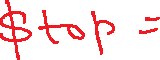 $top =